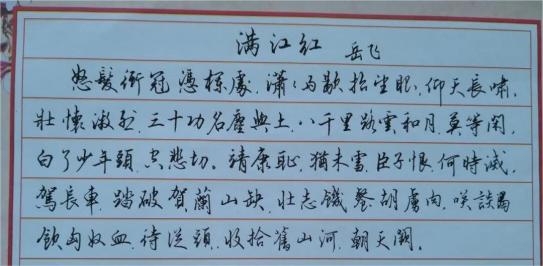 满江红 岳飞
怒髮衝冠,憑欄處,瀟々雨歇,抬望眼,仰天長嘯,
壯懷激烈,三十功名塵與土,八千里路雲和月,莫等闲,
白了少年頭,空悲切。靖康恥,猶未雪,臣子恨,何時滅,
駕長車,踏破賀蘭山缺,壯志饑餐胡虜肉,笑談渴
飲匈奴血,待從頭,收拾舊山河,朝天闕。